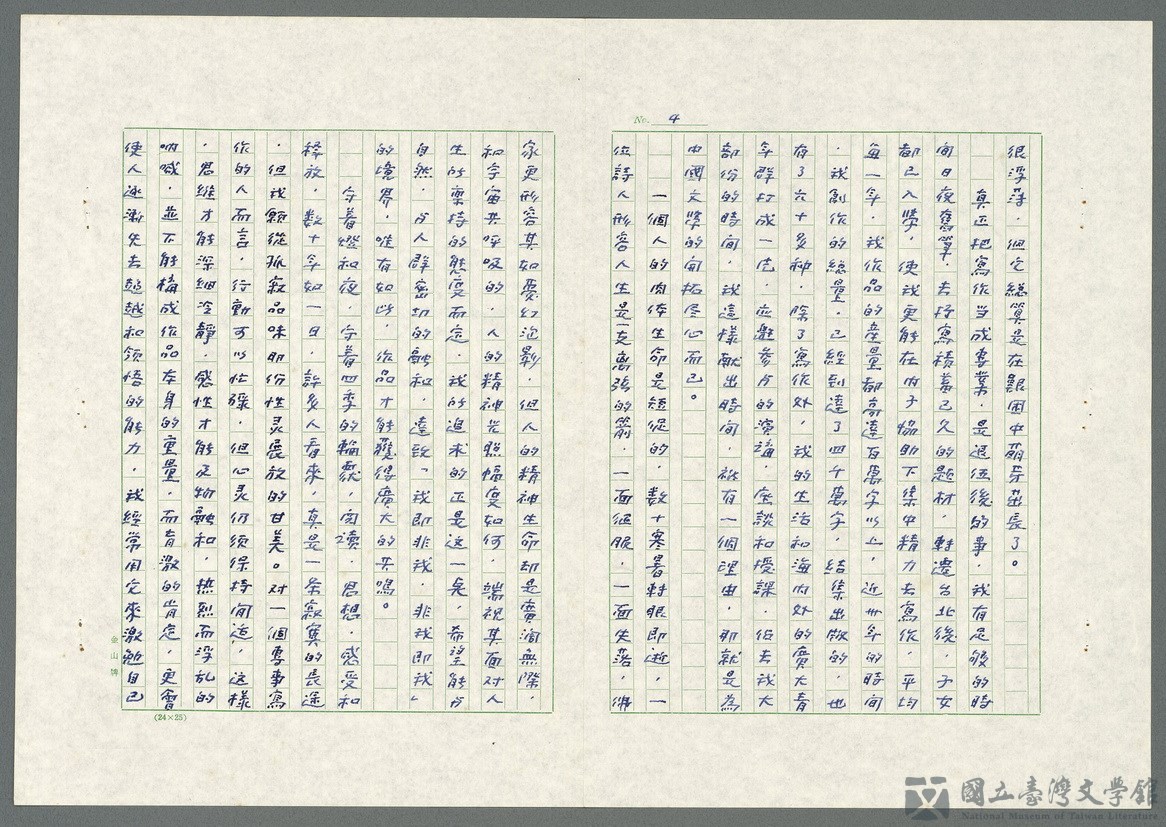 No. 4
很浮萍．但它總算是在艱困中萌芽茁長了。
真正把寫作当成專業．是退伍後的事．我有足够的時
间日夜舊筆．去抒寫積蓄已久的題材．軒遷台北後．子女
都已入學．使我更能在内子協助下集中精力去寫作．平均
每一年．我作品的產量都高達百萬字以上．近卅年的時间
．我創作的總量．已經到達了四千萬字．結集出版的．也
有了六十多种．除了寫作外．我的生活和海内外的廣大青
年群打成一片．应邀参加的演講．座談和授課．佔去我大
部份的時间．我這樣献出時间．衹有一個理由．那就是為
中國文學的开拓尽心而已。
一個人的肉体生命是短促的．数十寒暑轉眼即逝．一
位詩人形容人生是一支离弦的箭．一面征服．一面失落．佛
家更形容其如夢幻泡影．但人的精神生命却是廣闊無際．
和宇宙共呼吸的．人的精神光照幅度如何．端視其面对人
生所秉持的態度而定．我所追求的正是這一点．希望能与
自然．与人群密切的融和．達致「我即非我．非我即我」
的境界．唯有如此．作品才能獲得廣大的共鳴。
守着燈和夜．守着四季的輪裂．阅讀．思想．感受和
释放．数十年如一日．許多人看來．真是一条寂寞的長途
．但我願從孤寂品味那份性灵展放的甘美。对一個專事寫
作的人而言．行動可以忙碌．但心灵仍須保持间适．這樣
．思維才能深細冷靜．感性才能及物融和．热烈而浮乱的
吶喊．並不能構成作品本身的重量．而青澈的肯定．更會
使人逐漸失去超越和領悟的能力．我經常用它來激勉自己
金山牌
(24×25)
國立臺灣文學館
National Museum of Taiwan Literature